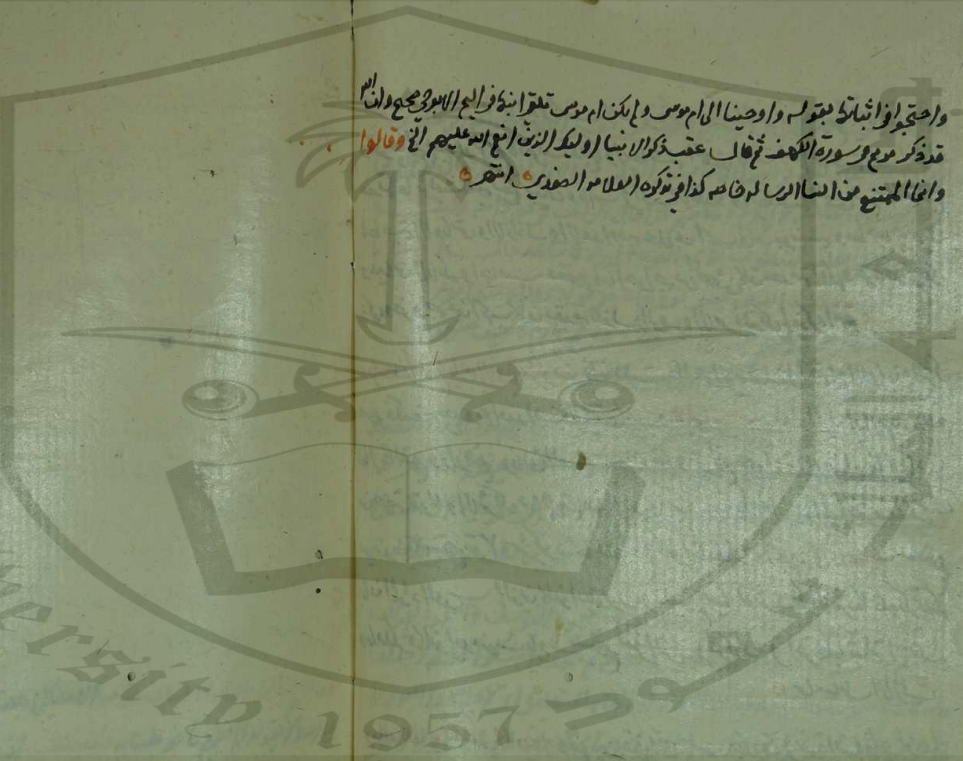 واحتجوا في اثباتها بقوله واوحينا الى ام موسى ولم تكن ام موسى تلقى ابنها في اليم الا بوحي صحيح وان الله
قد ذكر مريم في سورة الكهف ثم قال عقب ذكر الانبيا اوليك الذين انعم الله عليهم الخ وقالوا
وانما الممتنع من النسا الرساله خاصه كذا في تذكرة العلامه الصفدي انتهى
versity 1957